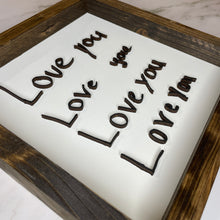 Love you
Love you
Love you
Love You